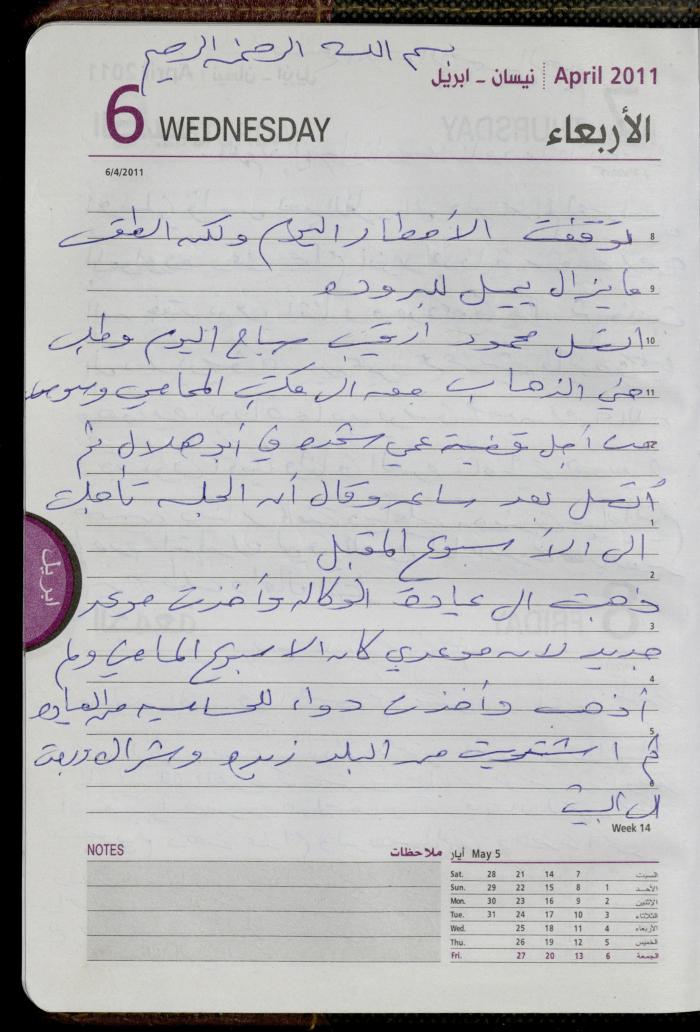 بسم الله الرحمن الرحيم
April 2011 نيسان - ابريل
6 WEDNESDAY الأربعاء
6/4/2011
8 توقفت الأمطار اليوم ولكن الطقس
9 ما يزال يميل للبروده
10 اتصل محمود صباح اليوم وطلب
11 مني الذهاب معه الى مكتب المحامي
12 من أجل قضية عمي شحده في أبو هلال ثم
1 أتصل بعد ساعه وقال أن الجلسه تأجلت
2 الى الأسبوع المقبل
3 ذهبت الى عيادة الوكاله وأخذت موعد
4 جديد لانه موعدي كان الاسبوع الماضي ولم
5 أذهب وأخذت دواء للحساسيه من العياده
6 ثم اشتريت من البلد
الى البيت
Week 14
ابريل
NOTES ملاحظات
May 5 أيار
Sat. 28 21 14 7 السبت
Sun. 29 22 15 8 1 الأحد
Mon. 30 23 16 9 2 الإثنين
Tue. 31 24 17 10 3 الثلاثاء
Wed. 25 18 11 4 الأربعاء
Thu. 26 19 12 5 الخميس
Fri. 27 20 13 6 الجمعة